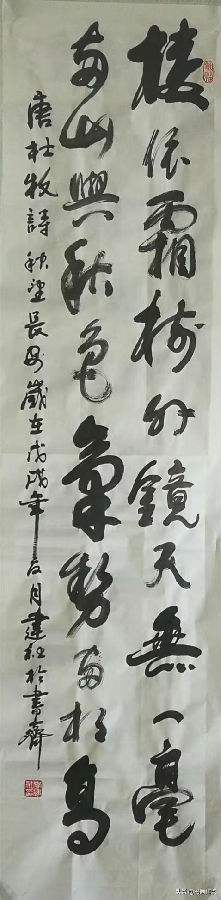 樓依霜樹外鏡天無一毫
南山與秋色氣勢兩相高
唐杜牧詩秋望長安歲在戊戌年夏月建紅於書齋